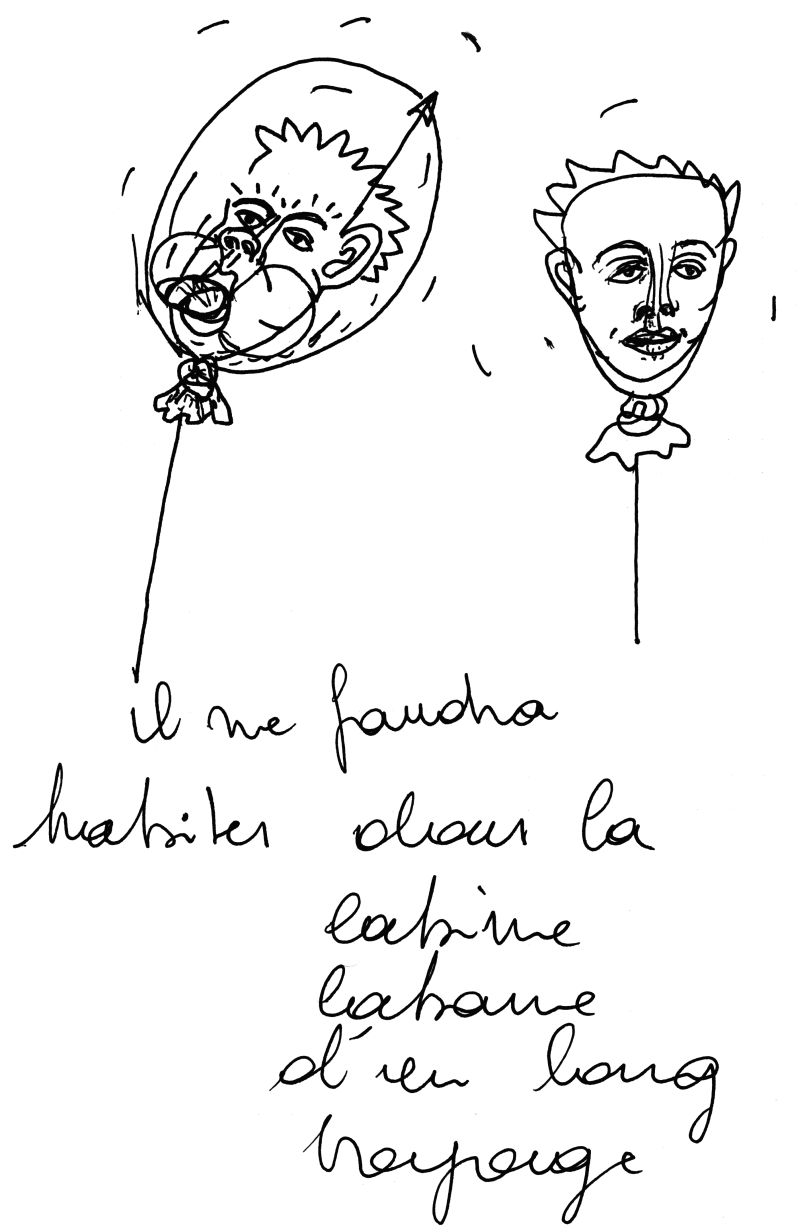 il me faudra
habiter dans la
cabine
cabane
d'un long
voyage